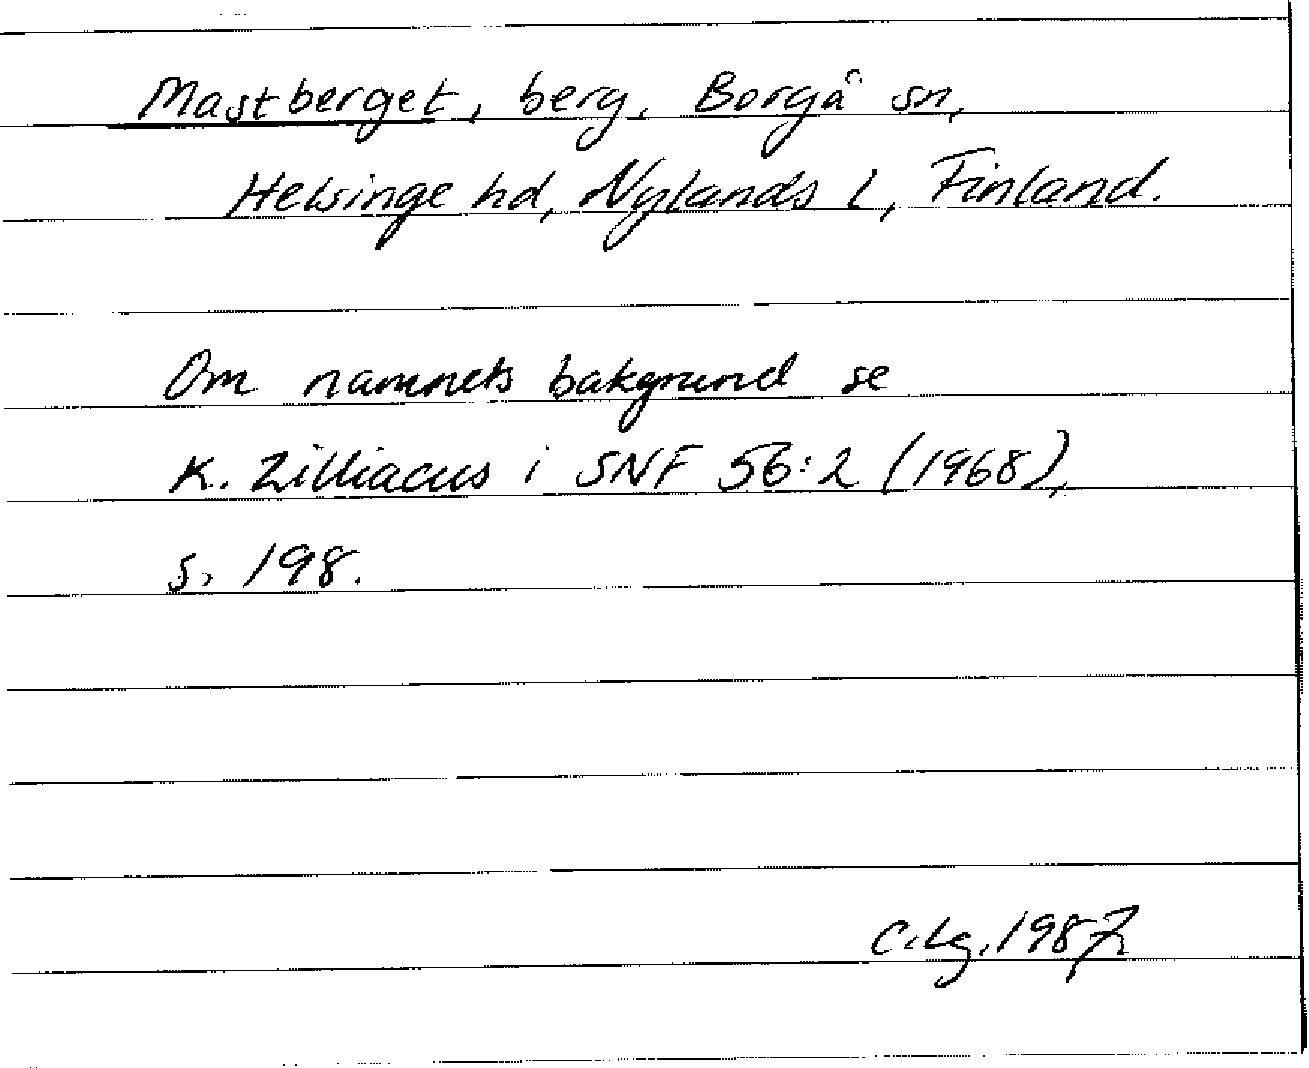 Mastberget, berg, Borgå sn,
Helsinge hd, Nylands l, Finland.
Om namnets bakgrund se
K. Zilliacus i SNF 56:2 (1968),
s. 198.
C.Lg. 1987